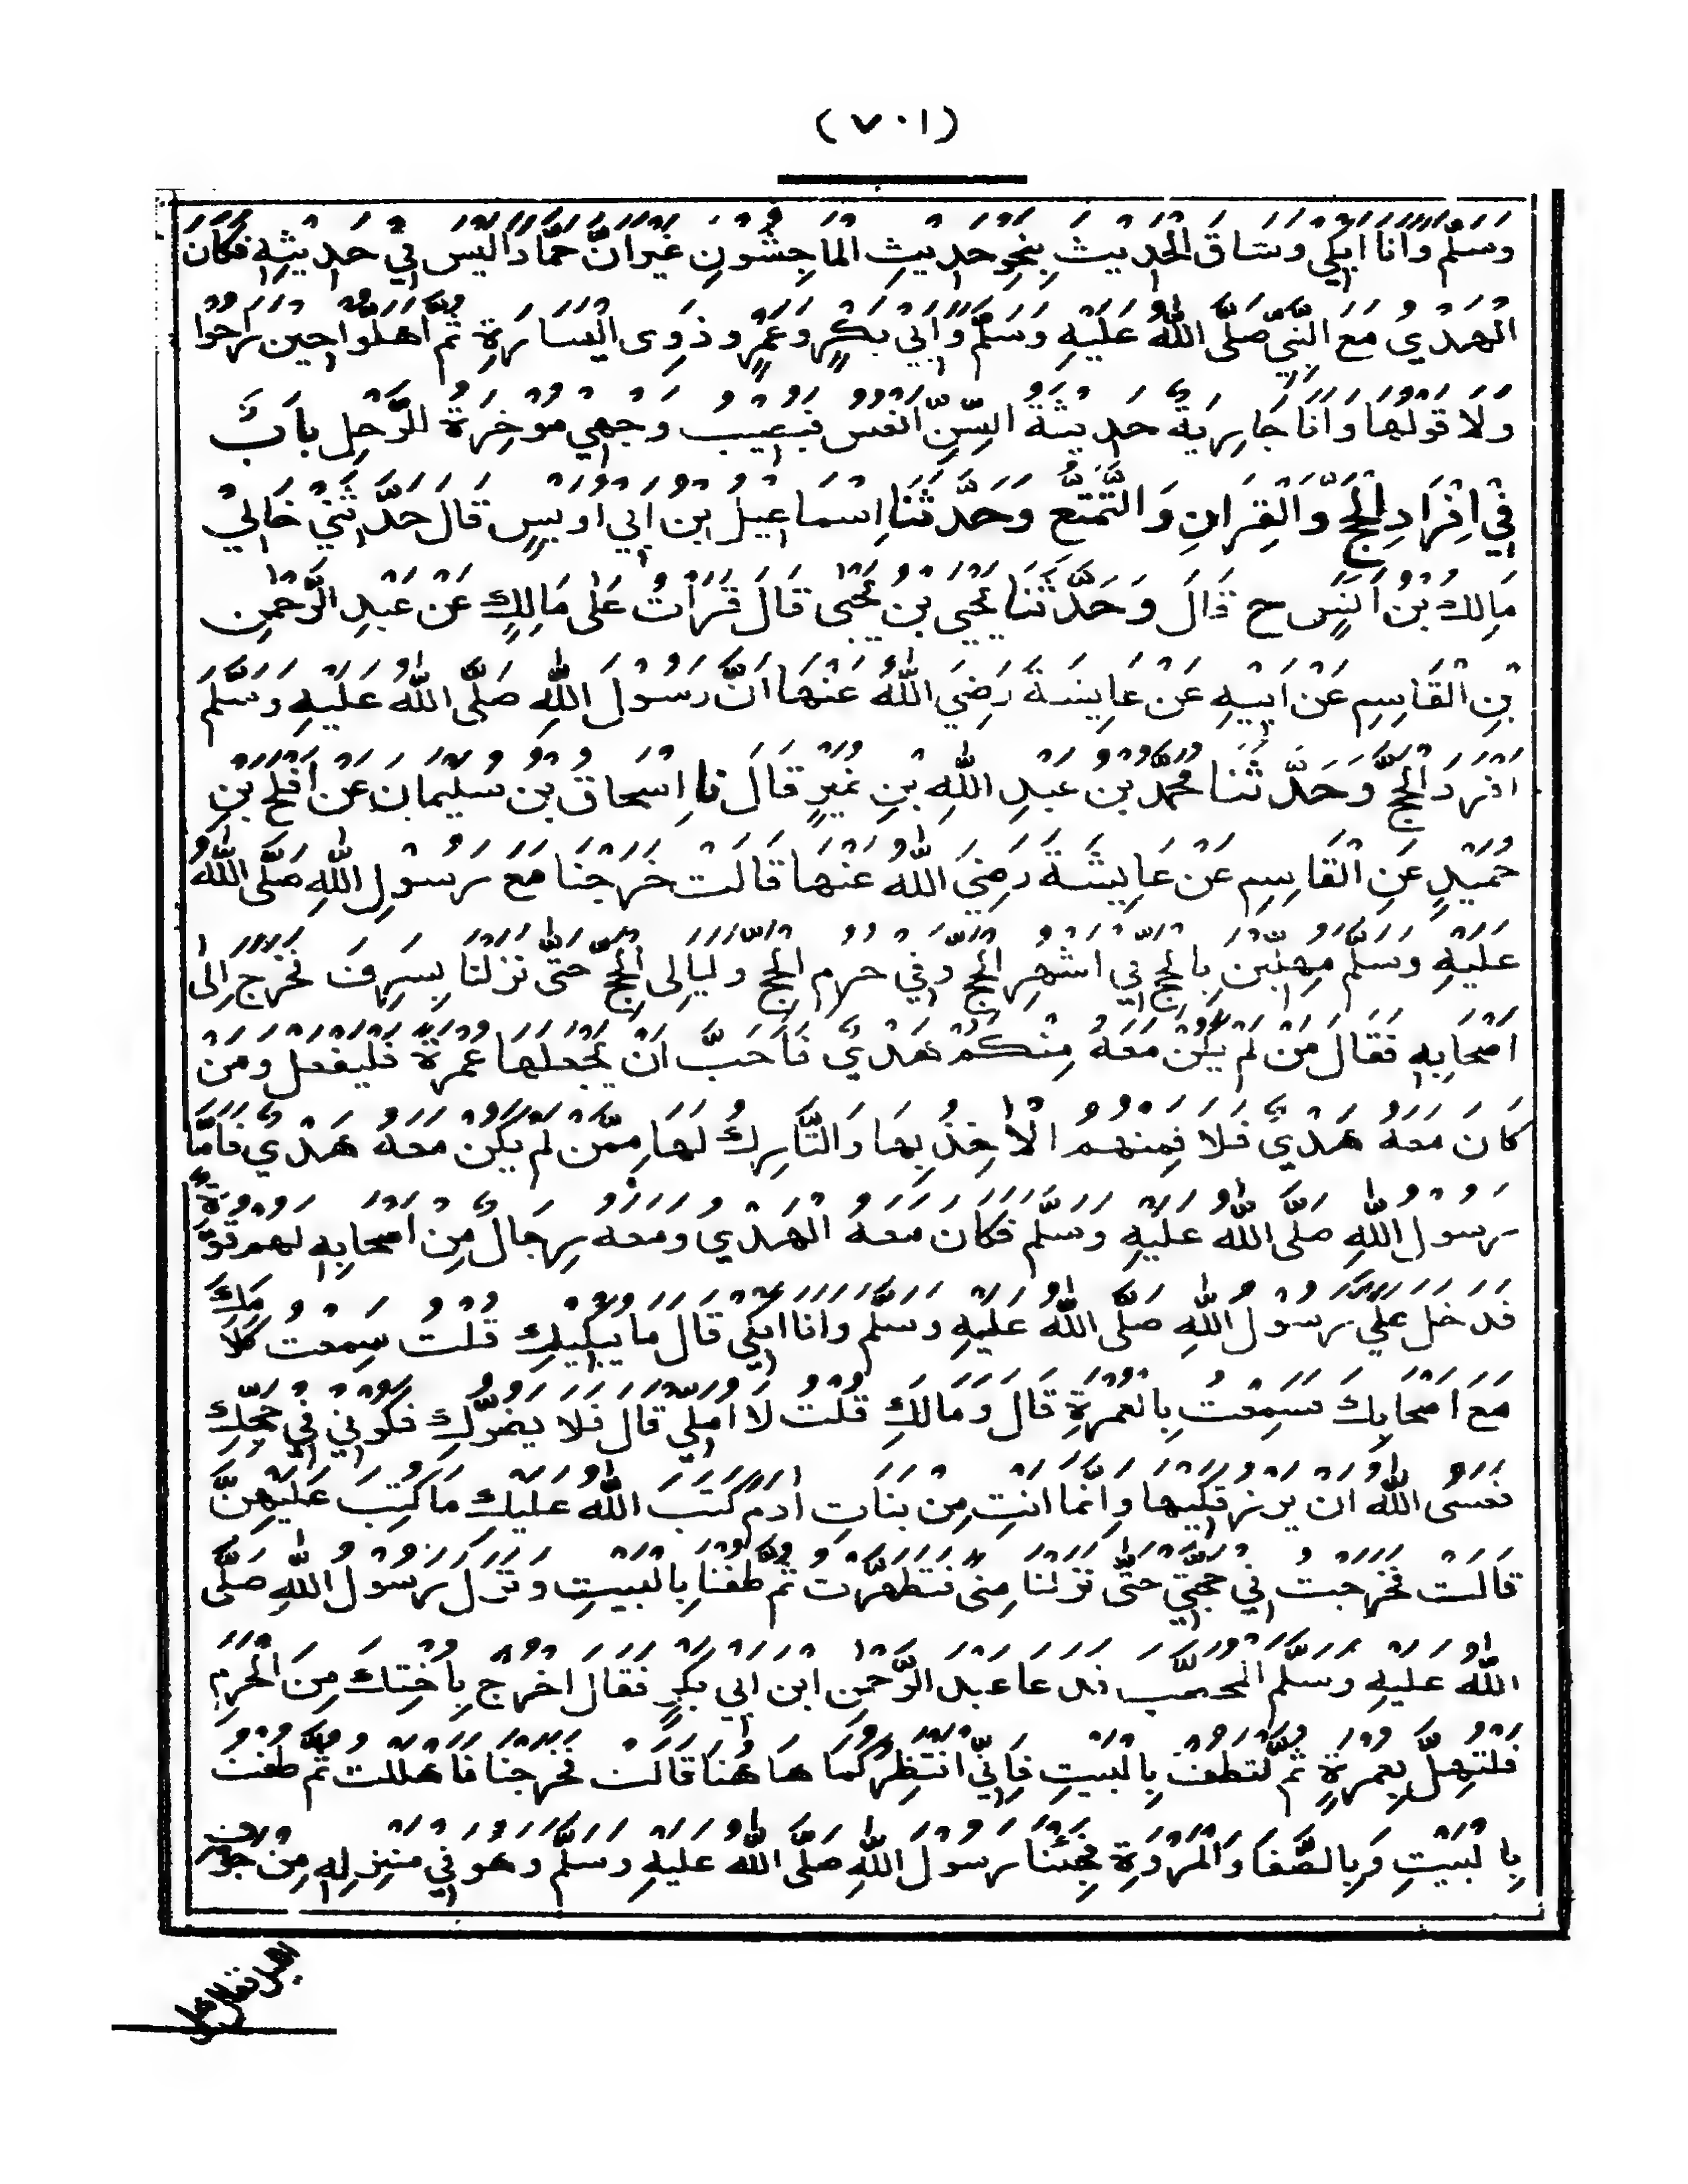 (٧٠١)
وَسَلَّمَ وَاَنَا اَبْكِي وَسَاقَ الْحَدِيْثَ بِنَحْوِ حَدِيْثِ الْمَاجِشُونِ غَيْرَ اَنَّ حَمَّادًا لَيْسَ فِيْ حَدِيْثِهٖ فَكَانَ
الْهَدْيُ مَعَ النَّبِيِّ صَلَّى اللّٰهُ عَلَيْهِ وَسَلَّمَ وَاَبِي بَكْرٍ وَعُمَرَ وَذَوِى الْيَسَارَةِ ثُمَّ اَهَلُّوا حِيْنَ رَاحُوْا
وَلَا قَوْلُهَا وَاَنَا جَارِيَةٌ حَدِيْثَةُ السِّنِّ اَنْعُسُ فَيُصِيْبُ وَجْهِي مُؤْخِرَةُ الرَّحْلِ بَابٌ
فِيْ اِفْرَادِ الْحَجِّ وَالْقِرَانِ وَالتَّمَتُّعِ وَحَدَّثَنَا اِسْمَاعِيْلُ بْنُ اَبِي اُوَيْسٍ قَالَ حَدَّثَنِيْ خَالِيْ
مَالِكُ بْنُ اَنَسٍ ح قَالَ وَحَدَّثَنَا يَحْيَى بْنُ يَحْيٰى قَالَ قَرَأْتُ عَلٰى مَالِكٍ عَنْ عَبْدِ الرَّحْمٰنِ
بْنِ الْقَاسِمِ عَنْ اَبِيْهِ عَنْ عَايِشَةَ رَضِيَ اللّٰهُ عَنْهَا اَنَّ رَسُوْلَ اللّٰهِ صَلَّى اللّٰهُ عَلَيْهِ وَسَلَّمَ
اَفْرَدَ الْحَجَّ وَحَدَّثَنَا مُحَمَّدُ بْنُ عَبْدِ اللّٰهِ بْنِ نُمَيْرٍ قَالَ نا اِسْحَاقُ بْنُ سُلَيْمَانَ عَنْ اَفْلَحَ بْنِ
حُمَيْدٍ عَنِ الْقَاسِمِ عَنْ عَايِشَةَ رَضِيَ اللّٰهُ عَنْهَا قَالَتْ خَرَجْنَا مَعَ رَسُوْلِ اللّٰهِ صَلَّى اللّٰهُ
عَلَيْهِ وَسَلَّمَ مُهِلِّيْنَ بِالْحَجِّ فِي اَشْهُرِ الْحَجِّ وَفِي حُرُمِ الْحَجِّ وَلَيَالِى الْحَجِّ حَتّٰى نَزَلْنَا بِسَرِفَ فَخَرَجَ اِلٰى
اَصْحَابِهٖ فَقَالَ مَنْ لَمْ يَكُنْ مَعَهُ مِنْكُمْ هَدْيٌ فَاَحَبَّ اَنْ يَجْعَلَهَا عُمْرَةً فَلْيَفْعَلْ وَمَنْ
كَانَ مَعَهُ هَدْيٌ فَلَا فَمِنْهُمُ الْاٰخِذُ بِهَا وَالتَّارِكُ لَهَا مِمَّنْ لَمْ يَكُنْ مَعَهُ هَدْيٌ فَاَمَّا
رَسُوْلُ اللّٰهِ صَلَّى اللّٰهُ عَلَيْهِ وَسَلَّمَ فَكَانَ مَعَهُ الْهَدْيُ وَمَعَهُ رِجَالٌ مِنْ اَصْحَابِهٖ لَهُمْ قُوَّةٌ
فَدَخَلَ عَلَيَّ رَسُوْلُ اللّٰهِ صَلَّى اللّٰهُ عَلَيْهِ وَسَلَّمَ وَاَنَا اَبْكِي قَالَ مَا يُبْكِيْكِ قُلْتُ سَمِعْتُ كَلَامَكَ
مَعَ اَصْحَابِكَ فَسَمِعْتُ بِالْعُمْرَةِ قَالَ وَمَالَكِ قُلْتُ لَا اُصَلِّي قَالَ فَلَا يَضُرُّكِ فَكُوْنِي فِي حَجِّكِ
فَعَسَى اللّٰهُ اَنْ يَرْزُقَكِيْهَا وَاِنَّمَا اَنْتِ مِنْ بَنَاتِ اٰدَمَ كَتَبَ اللّٰهُ عَلَيْكِ مَا كَتَبَ عَلَيْهِنَّ
قَالَتْ فَخَرَجْتُ فِي حَجَّتِي حَتّٰى نَزَلْنَا مِنًى فَتَطَهَّرْتُ ثُمَّ طُفْنَا بِالْبَيْتِ وَنَزَلَ رَسُوْلُ اللّٰهِ صَلَّى
اللّٰهُ عَلَيْهِ وَسَلَّمَ الْمُحَصَّبَ فَدَعَا عَبْدَ الرَّحْمٰنِ ابْنَ اَبِي بَكْرٍ فَقَالَ اخْرُجْ بِاُخْتِكَ مِنَ الْحَرَمِ
فَلْتُهِلَّ بِعُمْرَةٍ ثُمَّ لْتَطُفْ بِالْبَيْتِ فَاِنِّيْ اَنْتَظِرُكُمَا هَا هُنَا قَالَتْ فَخَرَجْنَا فَاَهْلَلْتُ ثُمَّ طُفْتُ
بِالْبَيْتِ وَبِالصَّفَا وَالْمَرْوَةِ فَجِئْنَا رَسُوْلَ اللّٰهِ صَلَّى اللّٰهُ عَلَيْهِ وَسَلَّمَ وَهُوَ فِي مَنْزِلِهٖ مِنْ جَوْفِ